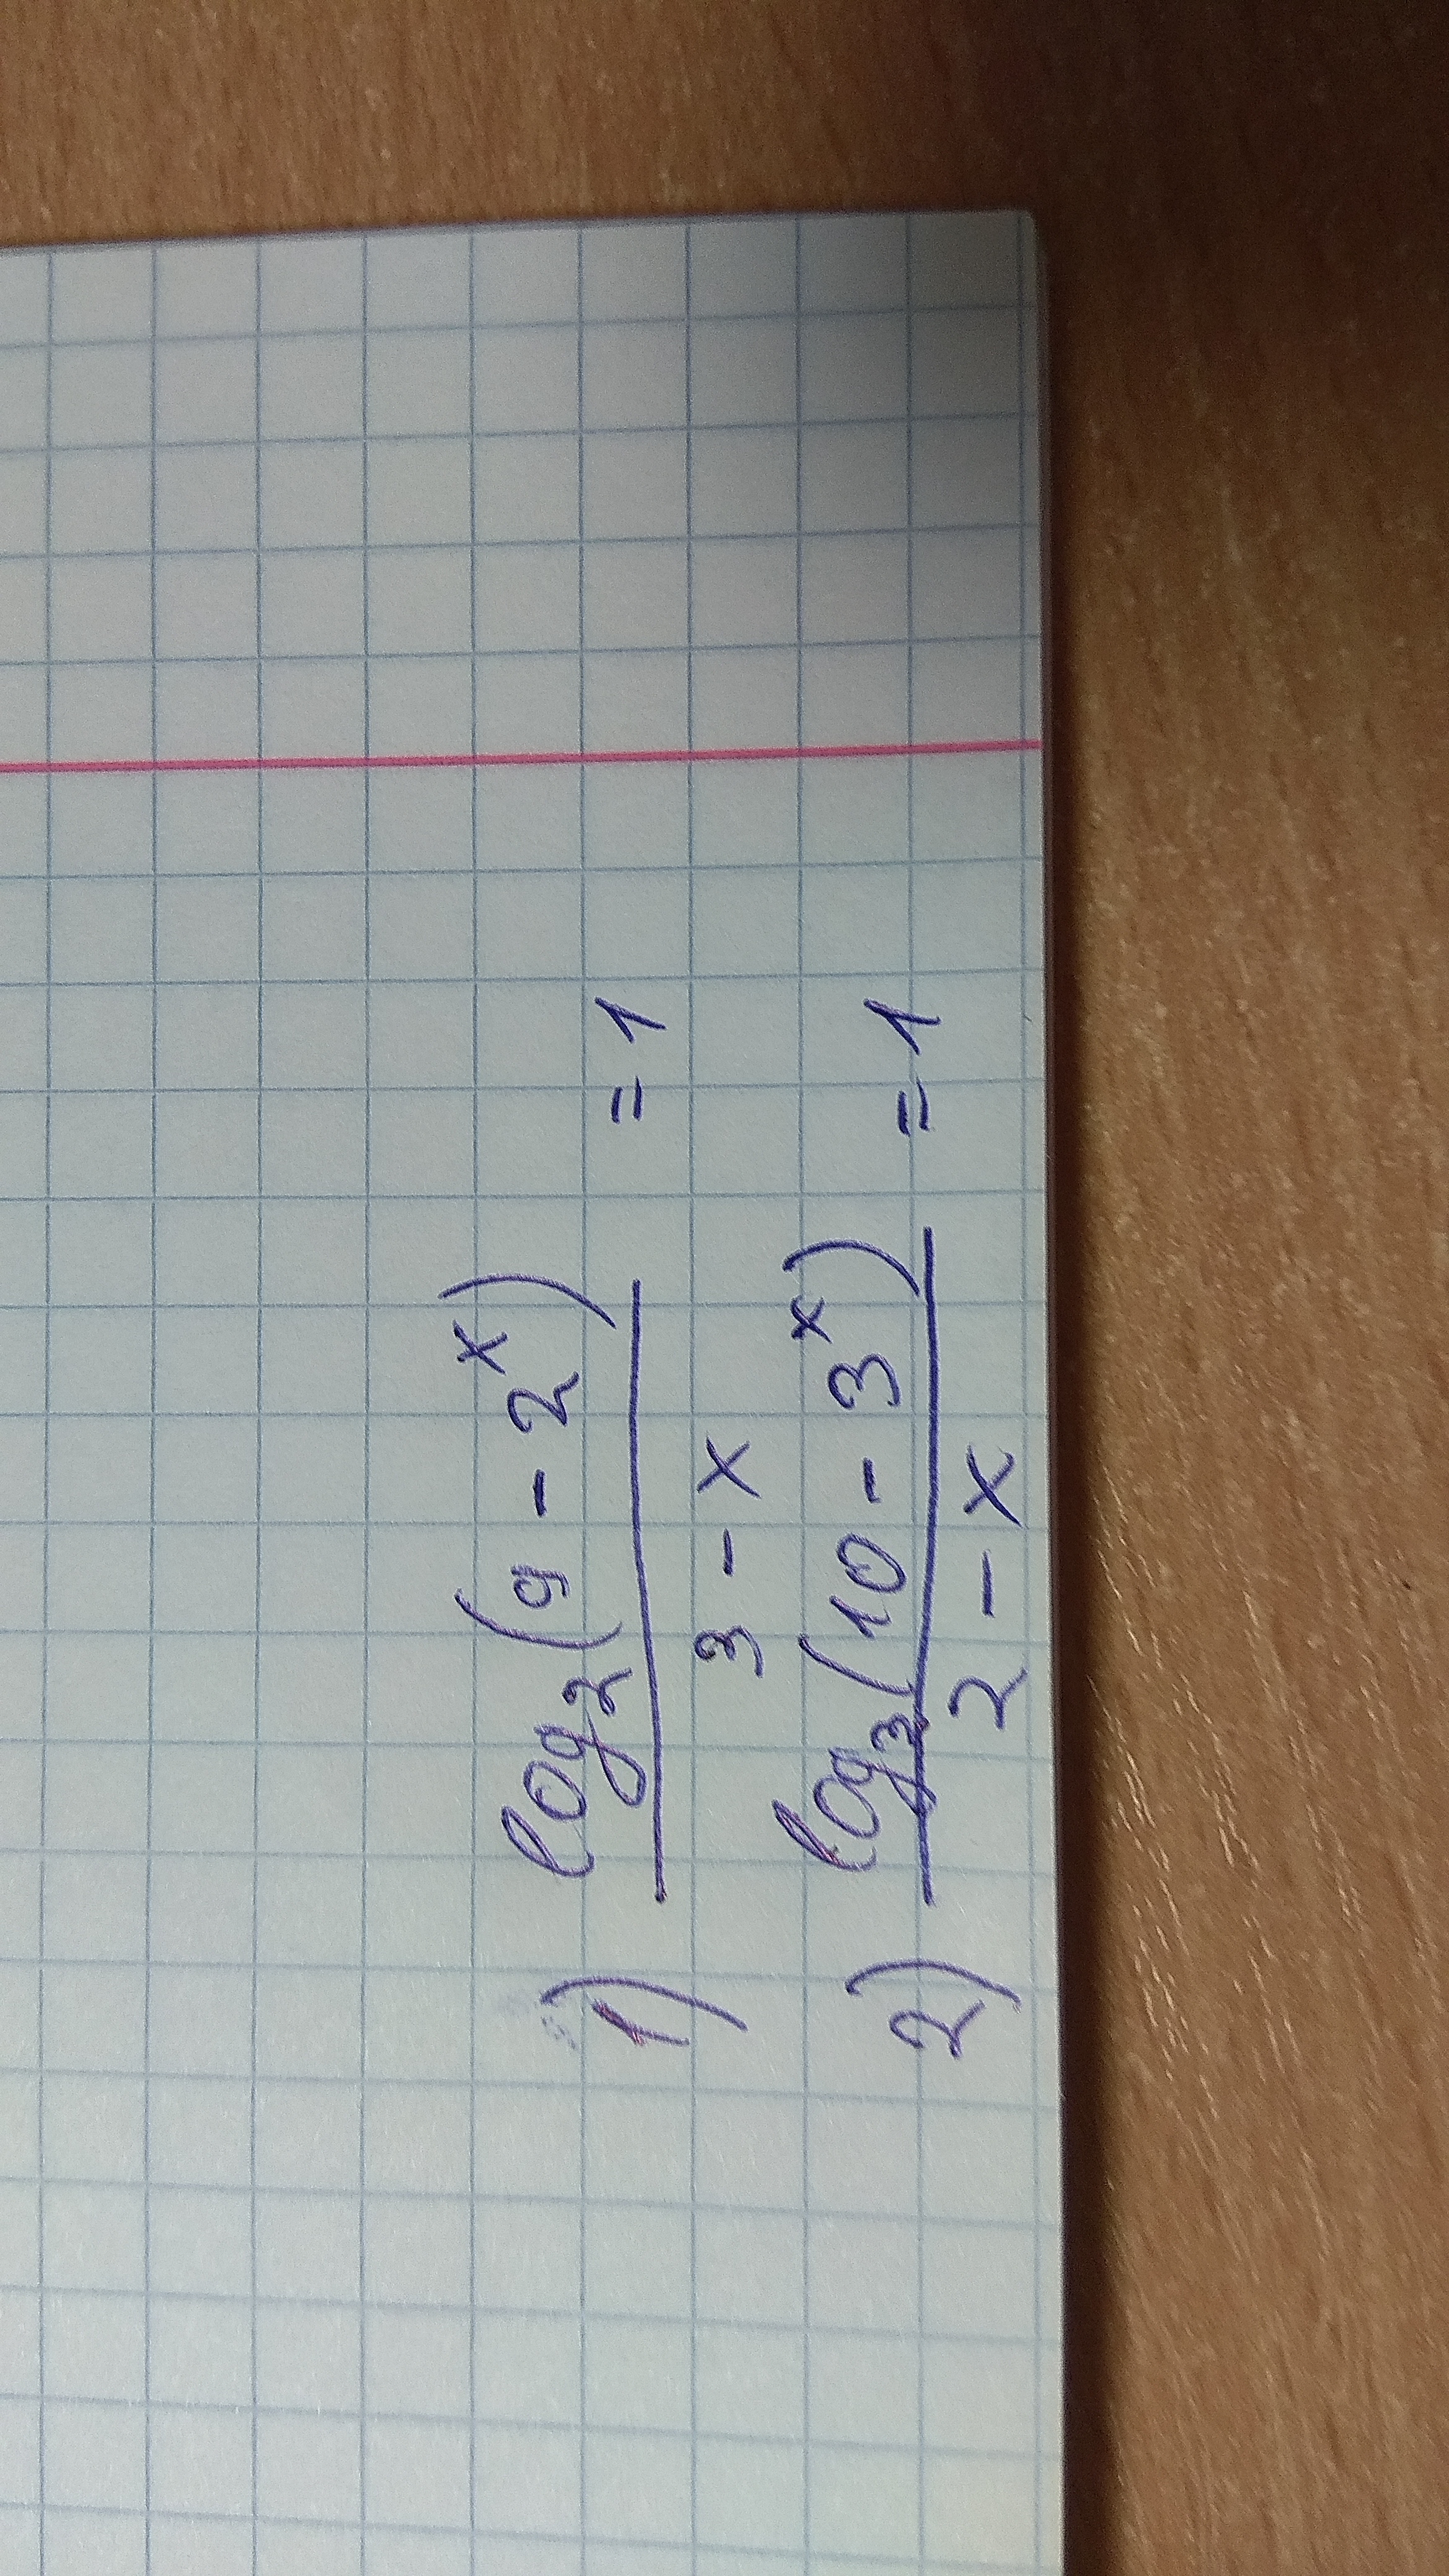 1) log₂(9 - 2ˣ) / 3 - x = 1
2) log₃(10 - 3ˣ) / 2 - x = 1